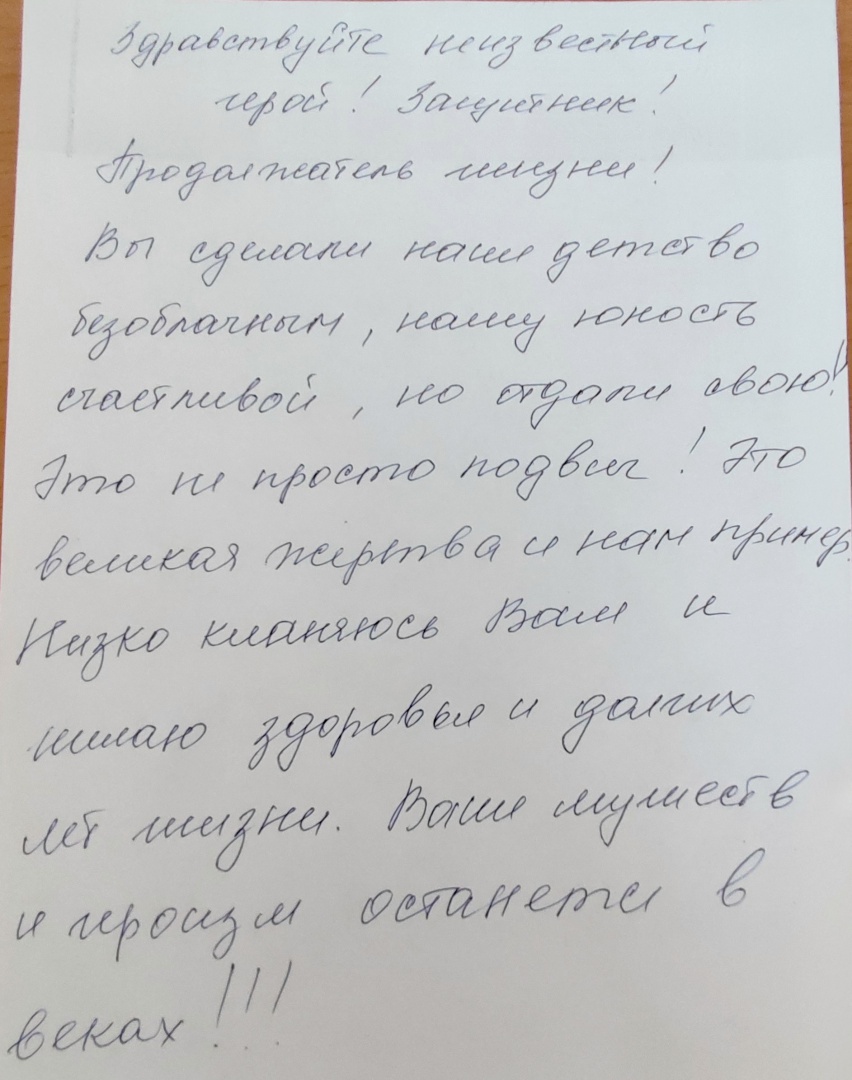 Здравствуйте неизвестный
герой! Защитник!
Продолжатель жизни!
Вы сделали наше детство
безоблачным, нашу юность
счастливой, но отдали свою!
Это не просто подвиг! Это
великая жертва и нам пример.
Низко кланяюсь Вам и
желаю здоровья и долгих
лет жизни. Ваше мужеств
и героизм останется в
веках!!!